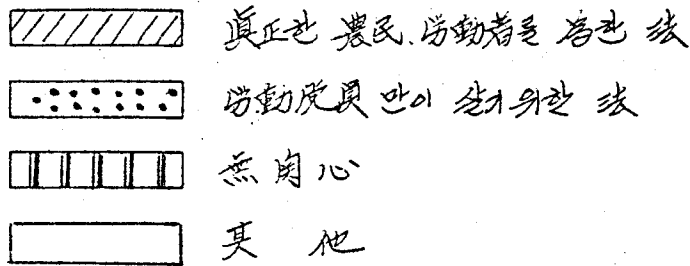 眞正한 農民.勞動者를 爲한 法
勞動党員 만이 살기 위한 法
無関心
其 他